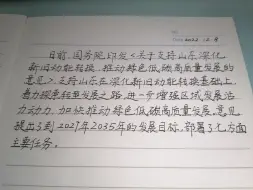 2022.12.8
日前,国务院印发《关于支持山东深化
新旧动能转换 推动绿色低碳高质量发展的
意见》,支持山东在深化新旧动能转换基础上,
着力探索转型发展之路,进一步增强区域发展活
力动力,加快推动绿色低碳高质量发展.意见
提出了到2027年2035年的发展目标,部署了七方面
主要任务。